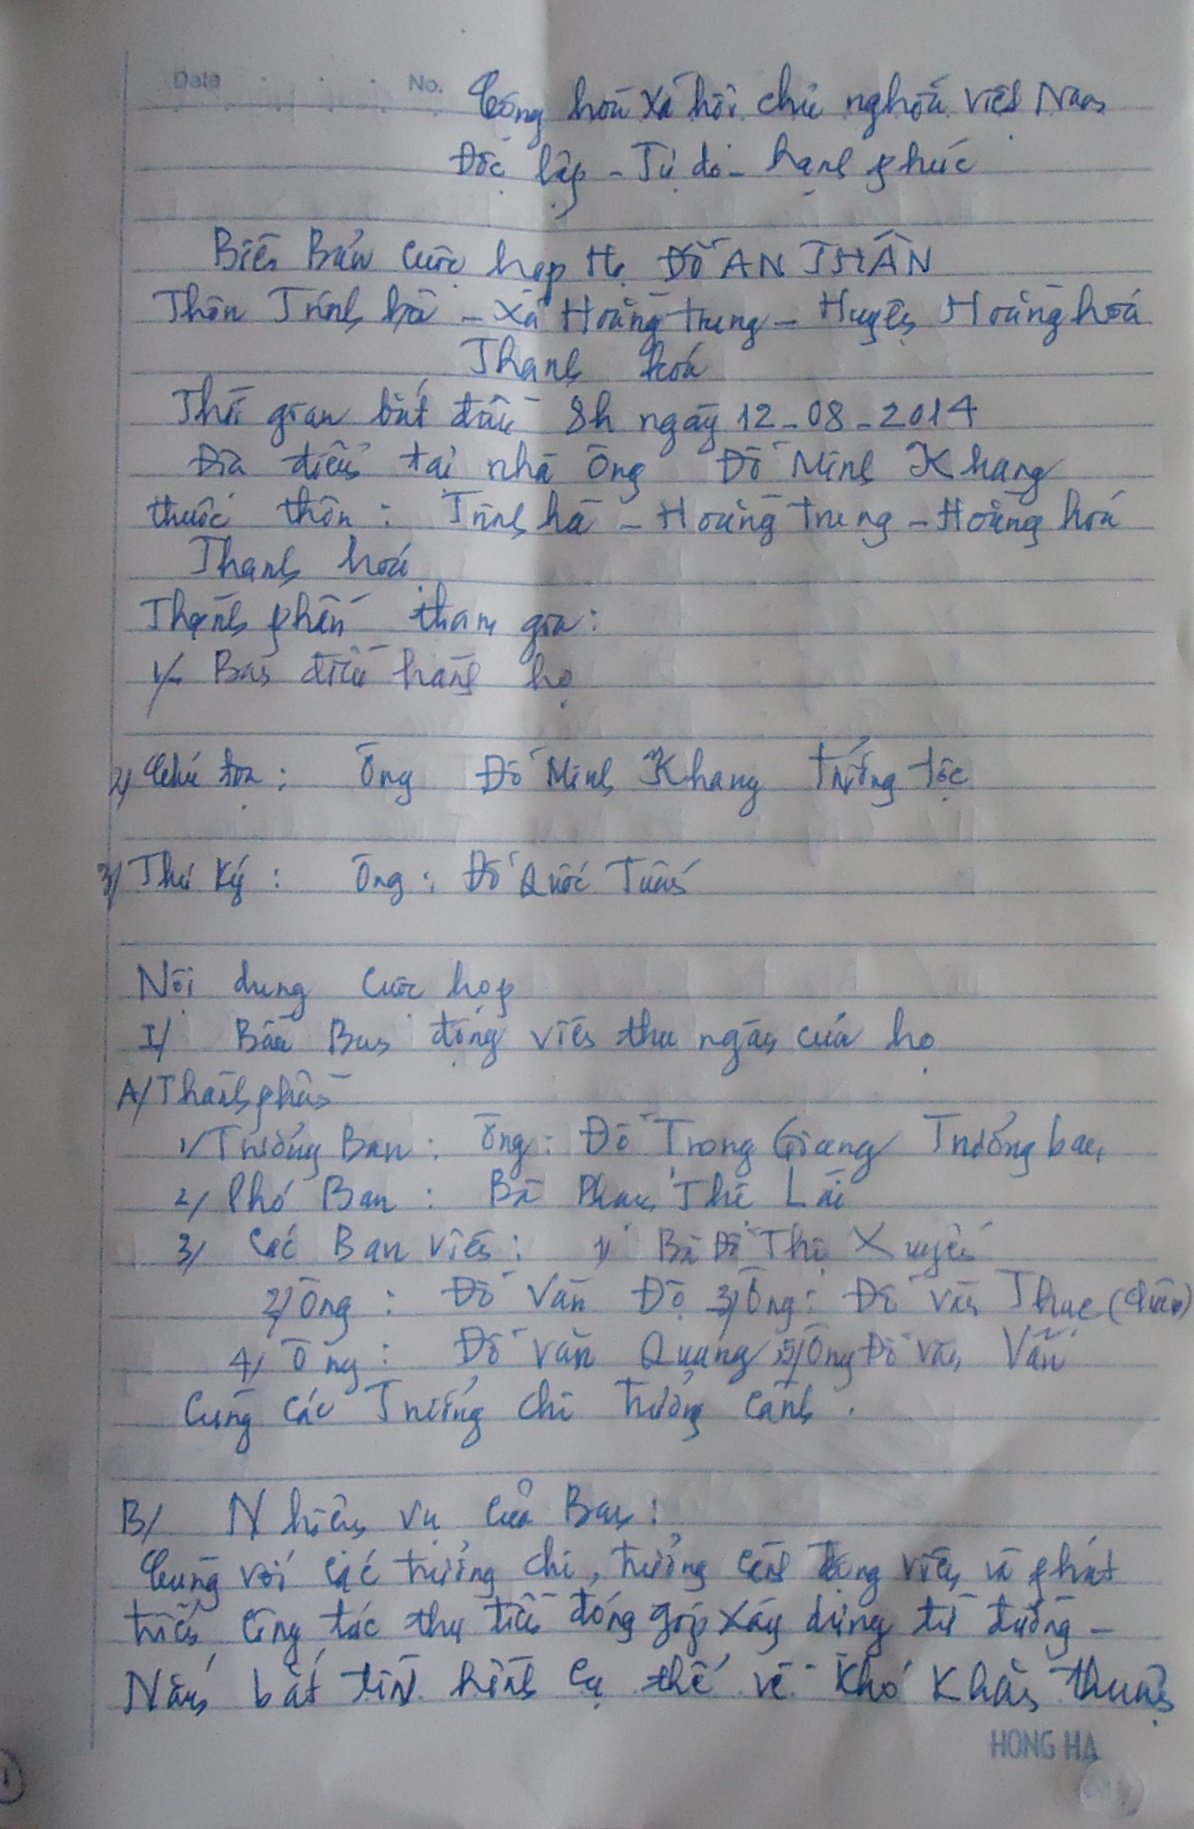 Date No.
Cộng hòa xã hội chủ nghĩa việt Nam
Độc lập - Tự do - hạnh phúc
Biên Bản cuộc họp Họ ĐỖ AN THÂN
Thôn Trinh hà - xã Hoằng trung - Huyện Hoằng hoá
Thanh hoá
Thời gian bắt đầu 8h ngày 12-08-2014
Địa điểm tại nhà ông Đỗ Minh Khang
thuộc thôn: Trinh hà - Hoằng trung - Hoằng hoá
Thanh hoá
Thành phần tham gia:
1/- Ban điều hành họ
2/ Chủ tọa: Ông Đỗ Minh Khang trưởng tộc
3/ Thư Ký: Ông: Đỗ Quốc Tuấn
Nội dung cuộc họp
I/ Bầu Ban động viên thu ngân của họ
A/ Thành phần
1/ Trưởng Ban: Ông: Đỗ Trọng Giang Trưởng ban
2/ Phó Ban: Bà Phan Thị Lài
3/ Các Ban viên: 1/ Bà Đỗ Thị Xuyến
2/ Ông: Đỗ Văn Độ 3/ Ông: Đỗ văn Thục
4/ Ông: Đỗ Văn Quảng 5/ Ông Đỗ văn Vấn
Cùng các Trưởng chi trưởng cành.
B/ Nhiệm vụ của Ban:
Cùng với các trưởng chi, trưởng cành động viên và phát
triển công tác thu tiền đóng góp xây dựng từ đường -
Nắm bắt tình hình cụ thể về khó khăn thuận
HONG HA
1